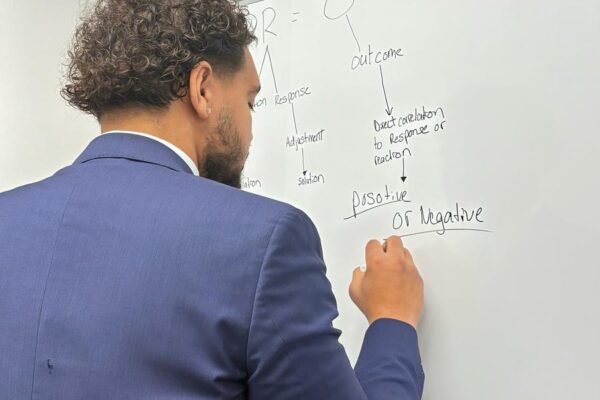 R = O
outcome
Response
Direct correlation
to Response or
reaction
Adjustment
solution
posotive
or Negative